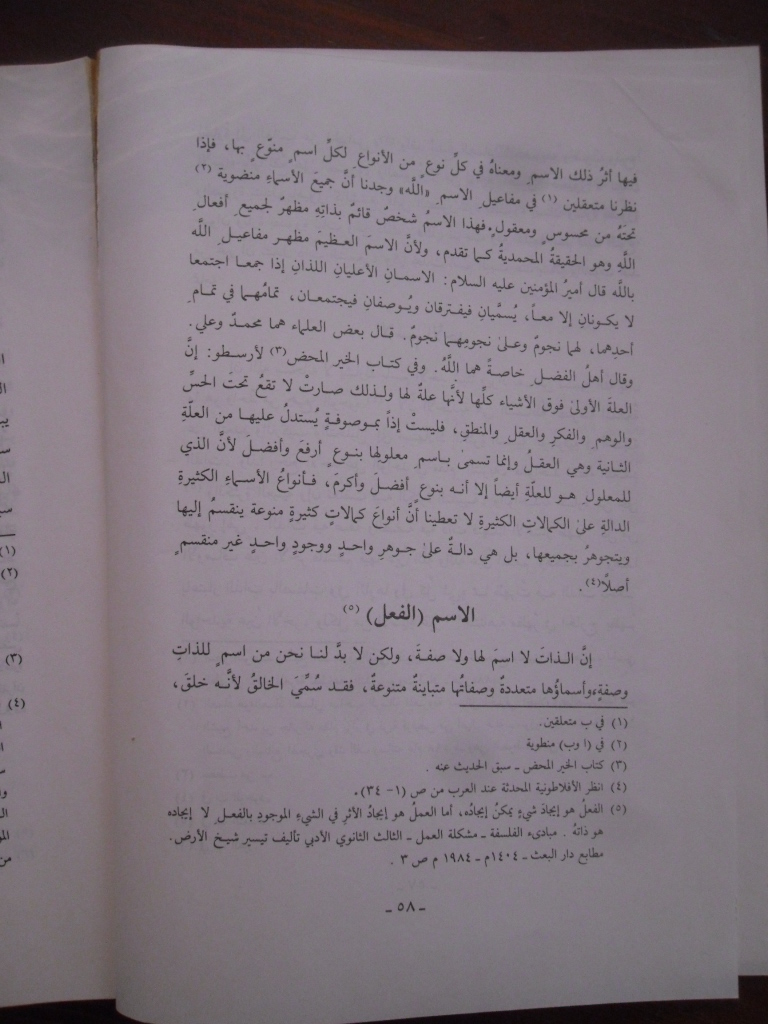 فيها أثرُ ذلك الاسمِ ومعناهُ في كلِّ نوعٍ من الأنواعِ لكلِّ اسمٍ منوّعٍ بها، فإذا
نظرنا متعقلين (١) في مفاعيلِ الاسمِ «اللَّه» وجدنا أنَّ جميعَ الأسماءِ منضوية (٢)
تحتَهُ من محسوسٍ ومعقولٍ. فهذا الاسمُ شخصٌ قائمٌ بذاتِهِ مظهرٌ لجميعِ أفعالِ
اللَّهِ وهو الحقيقةُ المحمديةُ كما تقدم، ولأنَّ الاسمَ العظيمَ مظهر مفاعيلِ اللَّه
باللَّه قال أميرُ المؤمنين عليه السلام: الاسمانِ الأعليانِ اللذانِ إذا جمعا اجتمعا
لا يكونانِ إلا معاً، يُسمَّيانِ فيفترقان ويُوصفانِ فيجتمعان، تمامُهما في تمامِ
أحدِهما، لهما نجومٌ وعلى نجومِهما نجومٌ. قال بعض العلماء هما محمدٌ وعلي.
وقال أهلُ الفضلِ خاصةً هما اللَّهُ. وفي كتابِ الخير المحض(٣) لأرسطو: إنَّ
العلةَ الأولىٰ فوق الأشياء كلِّها لأنَّها علةٌ لها ولذلك صارتْ لا تقعُ تحتَ الحسِّ
والوهمِ والفكرِ والعقلِ والمنطقِ، فليستْ إذاً بموصوفةٍ يُستدلُ عليها من العلّةِ
الثانية وهي العقلُ وإنما تسمىٰ باسمِ معلولِها بنوعٍ أرفعَ وأفضلَ لأنَّ الذي
للمعلولِ هو للعلّةِ أيضاً إلا أنه بنوعٍ أفضلَ وأكرمَ، فأنواعُ الأسماءِ الكثيرةِ
الدالةِ علىٰ الكمالاتِ الكثيرةِ لا تعطينا أنَّ أنواعَ كمالاتٍ كثيرةٍ منوعة ينقسمُ إليها
ويتجوهرُ بجميعها، بل هي دالةٌ علىٰ جوهرٍ واحدٍ ووجودٍ واحدٍ غير منقسمٍ
أصلاً(٤).
الاسم (الفعل) (٥)
إنَّ الذاتَ لا اسمَ لها ولا صفةَ، ولكن لا بدَّ لنا نحن من اسمٍ للذاتِ
وصفةٍ، وأسماؤُها متعددةٌ وصفاتُها متباينةٌ متنوعةٌ، فقد سُمِّيَ الخالقُ لأنَّه خلقَ،
(١) في ب متعلقين.
(٢) في (ا وب) منطوية
(٣) كتاب الخير المحض ـ سبق الحديث عنه .
(٤) انظر الأفلاطونية المحدثة عند العرب من ص (١- ٣٤).
(٥) الفعلُ هو إيجاد شيءٍ يمكنُ إيجادُه، أما العملُ هو إيجادُ الأثرِ في الشيءِ الموجودِ بالفعلِ لا إيجاده
هو ذاتُهُ . مبادىء الفلسفة ـ مشكلة العمل ـ الثالث الثانوي الأدبي تأليف تيسير شيخ الأرض.
مطابع دار البعث ـ ١٤٠٤م ـ ١٩٨٤ م ص ٣ .
ـ ٥٨ ـ